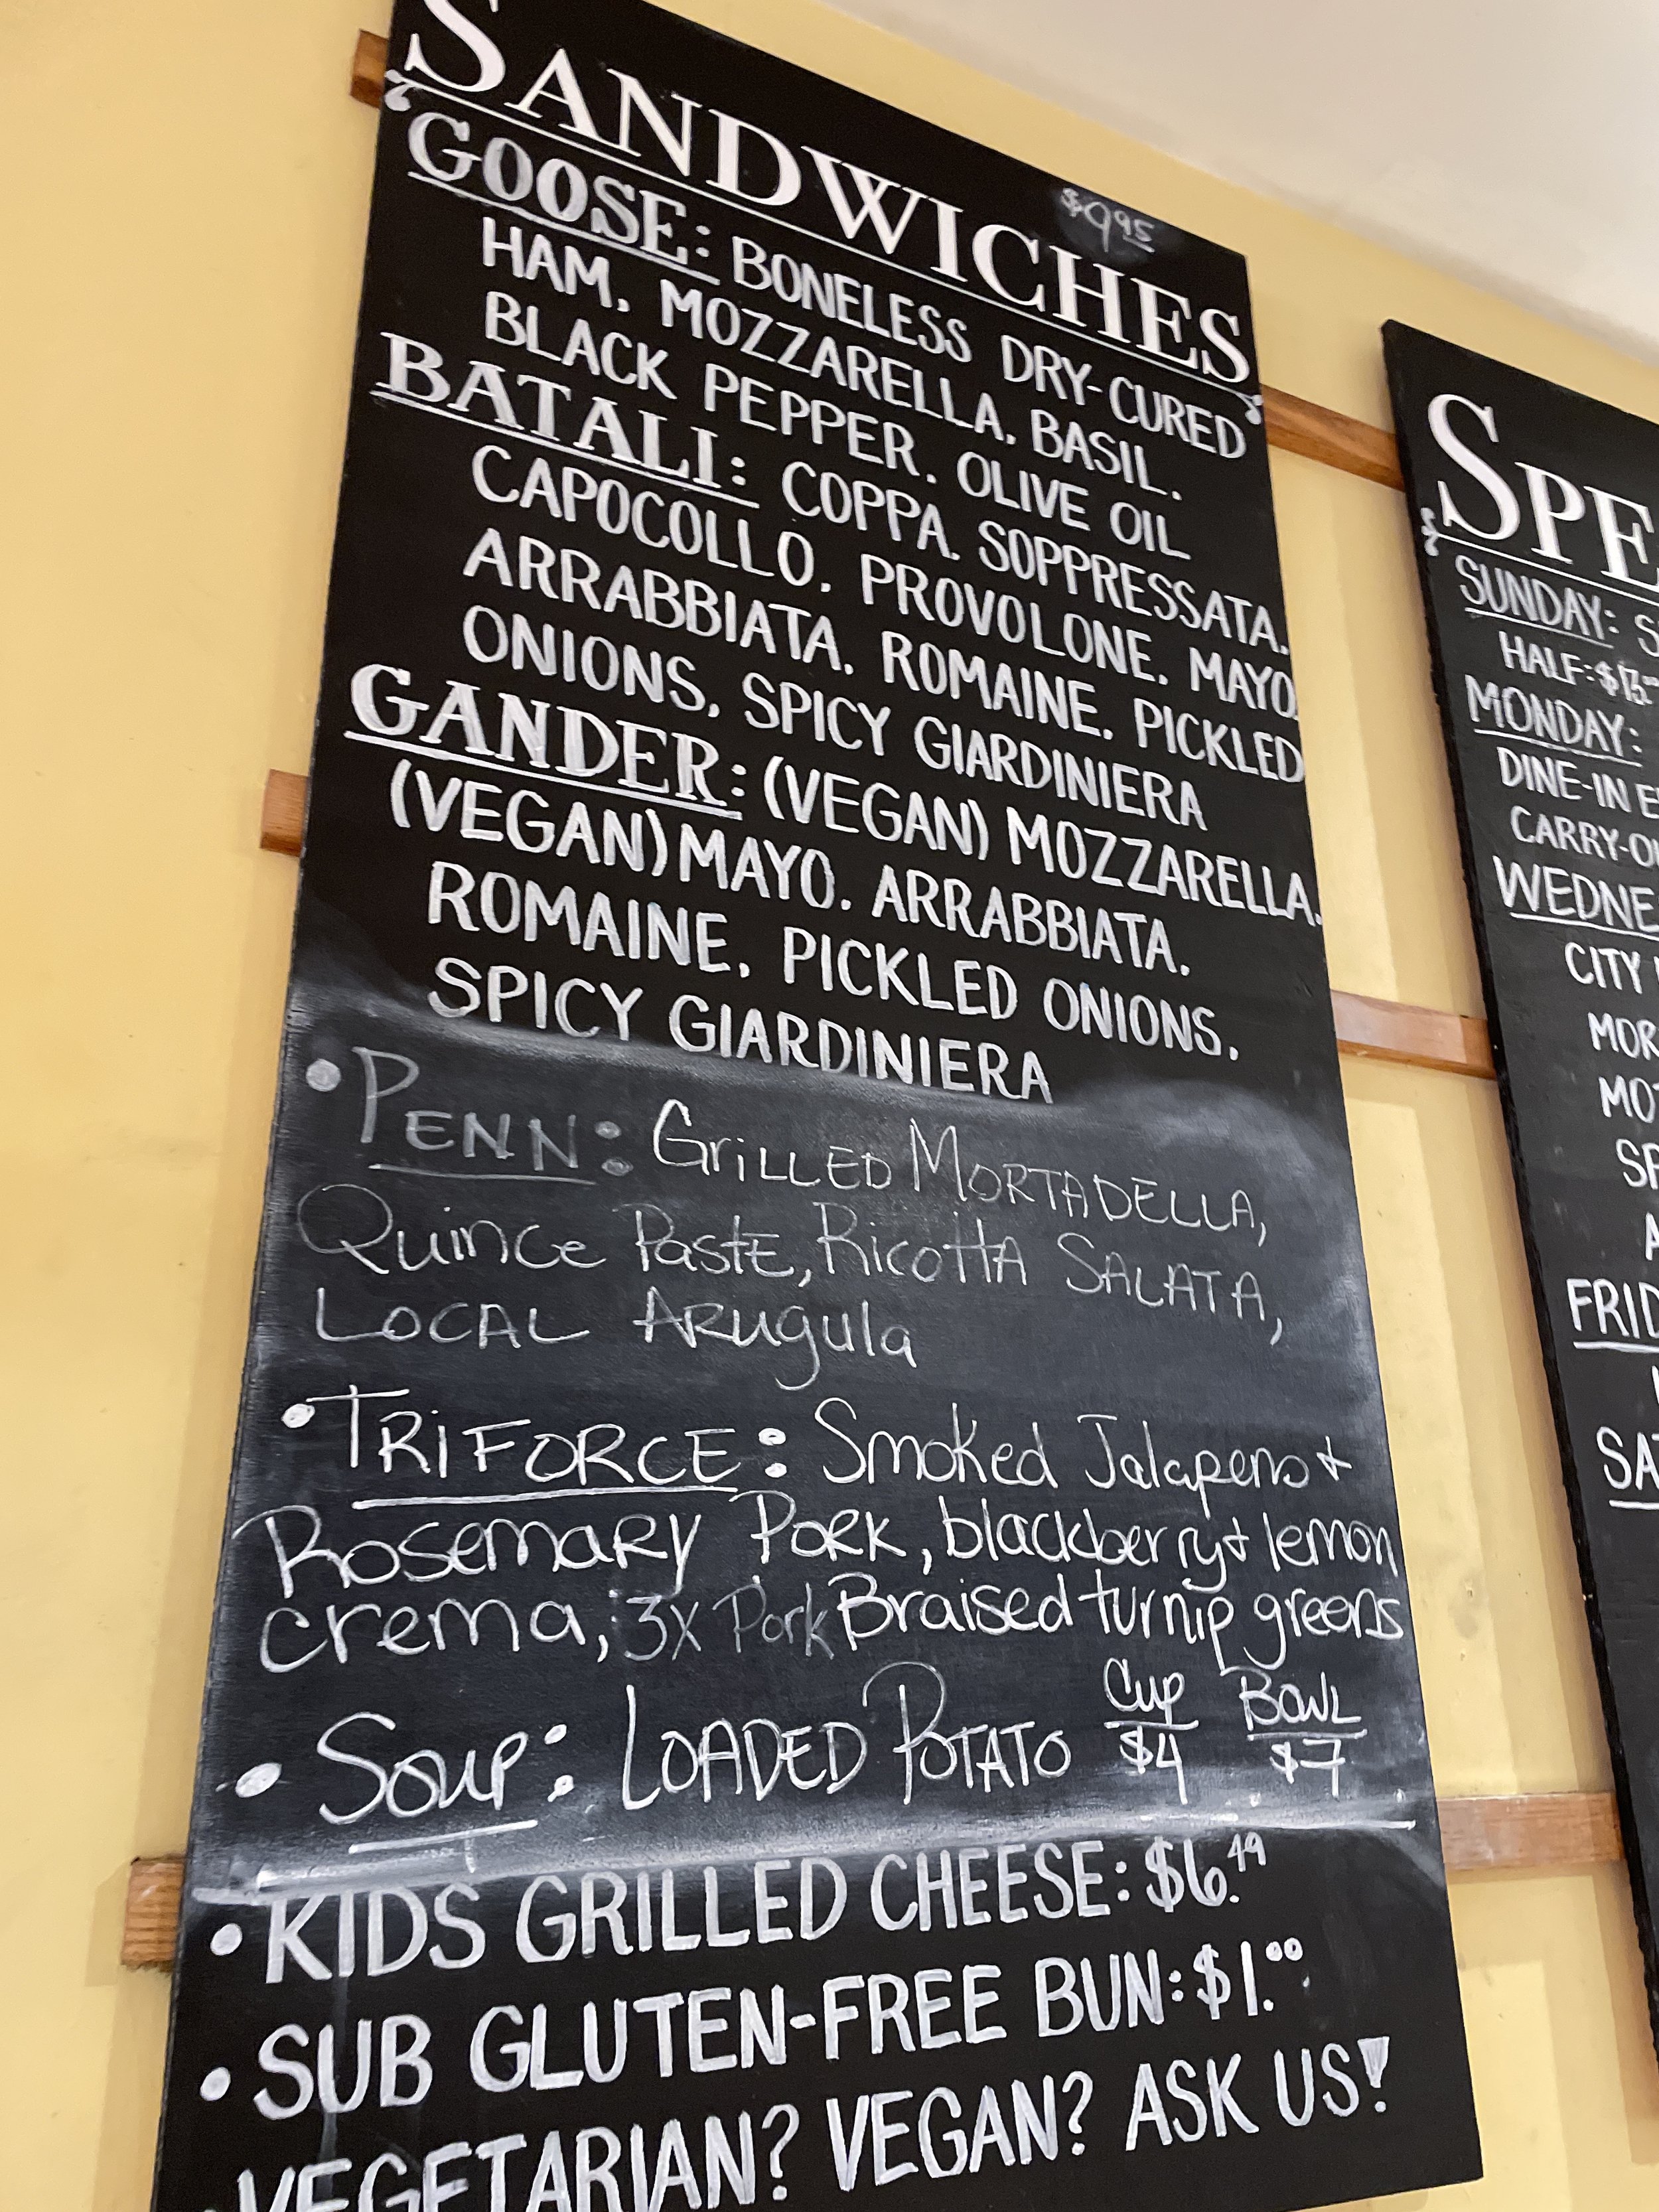 SANDWICHES $9.95
GOOSE: BONELESS DRY-CURED
HAM, MOZZARELLA, BASIL,
BLACK PEPPER, OLIVE OIL
BATALI: COPPA, SOPPRESSATA,
CAPOCOLLO, PROVOLONE, MAYO,
ARRABBIATA, ROMAINE, PICKLED
ONIONS, SPICY GIARDINIERA
GANDER: (VEGAN) MOZZARELLA,
(VEGAN) MAYO, ARRABBIATA,
ROMAINE, PICKLED ONIONS,
SPICY GIARDINIERA
• PENN: GRiLLED MORTADELLA,
Quince Paste, Ricotta SALATA,
LOCAL Arugula
• TRiFORCE: Smoked Jalapeno +
Rosemary Pork, blackberry + lemon
crema, 3x Pork Braised turnip greens
• Soup: LOADED POTATO Cup $4 BOWL $7
• KIDS GRILLED CHEESE: $6.49
• SUB GLUTEN-FREE BUN: $1.00
• VEGETARIAN? VEGAN? ASK US!
SUNDAY:
HALF: $13
MONDAY:
DINE-IN
CITY